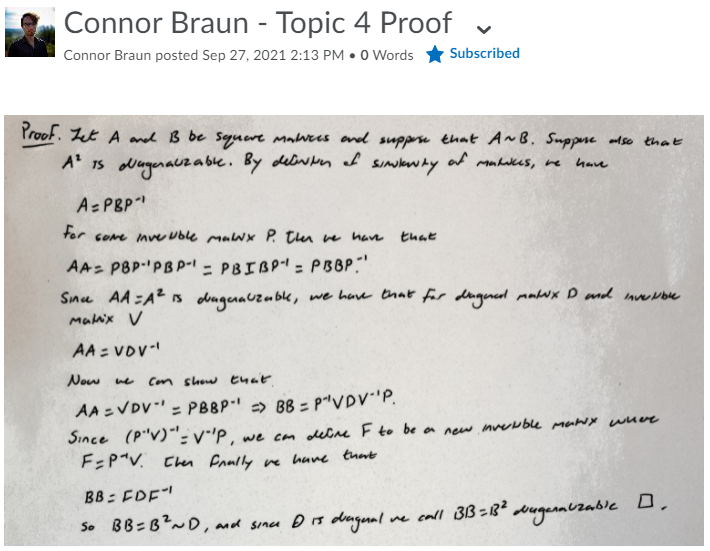 Connor Braun - Topic 4 Proof
Connor Braun posted Sep 27, 2021 2:13 PM • 0 Words ★ Subscribed
Proof. Let A and B be square matrices and suppose that A~B. Suppose also that
A² is diagonalizable. By definition of similarity of matrices, we have
A=PBP⁻¹
For some invertible matrix P. Then we have that
AA= PBP⁻¹PBP⁻¹ = PBIBP⁻¹ = PBBP⁻¹.
Since AA=A² is diagonalizable, we have that for diagonal matrix D and invertible
matrix V
AA=VDV⁻¹
Now we can show that
AA=VDV⁻¹ = PBBP⁻¹ ⇒ BB = P⁻¹VDV⁻¹P.
Since (P⁻¹V)⁻¹=V⁻¹P, we can define F to be a new invertible matrix where
F=P⁻¹V. Then finally we have that
BB=FDF⁻¹
So BB=B²~D, and since D is diagonal we call BB=B² diagonalizable □.